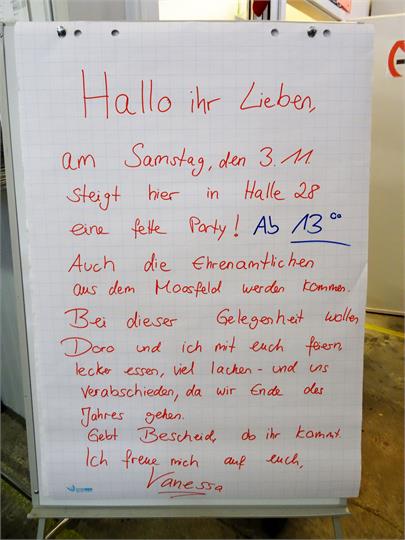 Hallo ihr Lieben,
am Samstag, den 3.11.
steigt hier in Halle 28
eine fette Party! Ab 13⁰⁰
Auch die Ehrenamtlichen
aus dem Moosfeld werden kommen.
Bei dieser Gelegenheit wollen
Doro und ich mit euch feiern,
lecker essen, viel lachen - und uns
verabschieden, da wir Ende des
Jahres gehen.
Gebt Bescheid, ob ihr kommt.
Ich freue mich auf euch,
Vanessa